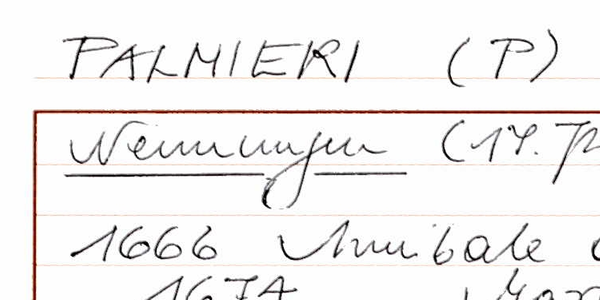 PALMIERI (P)
Nennungen (17. J
1666 Annibale
1674 Mar